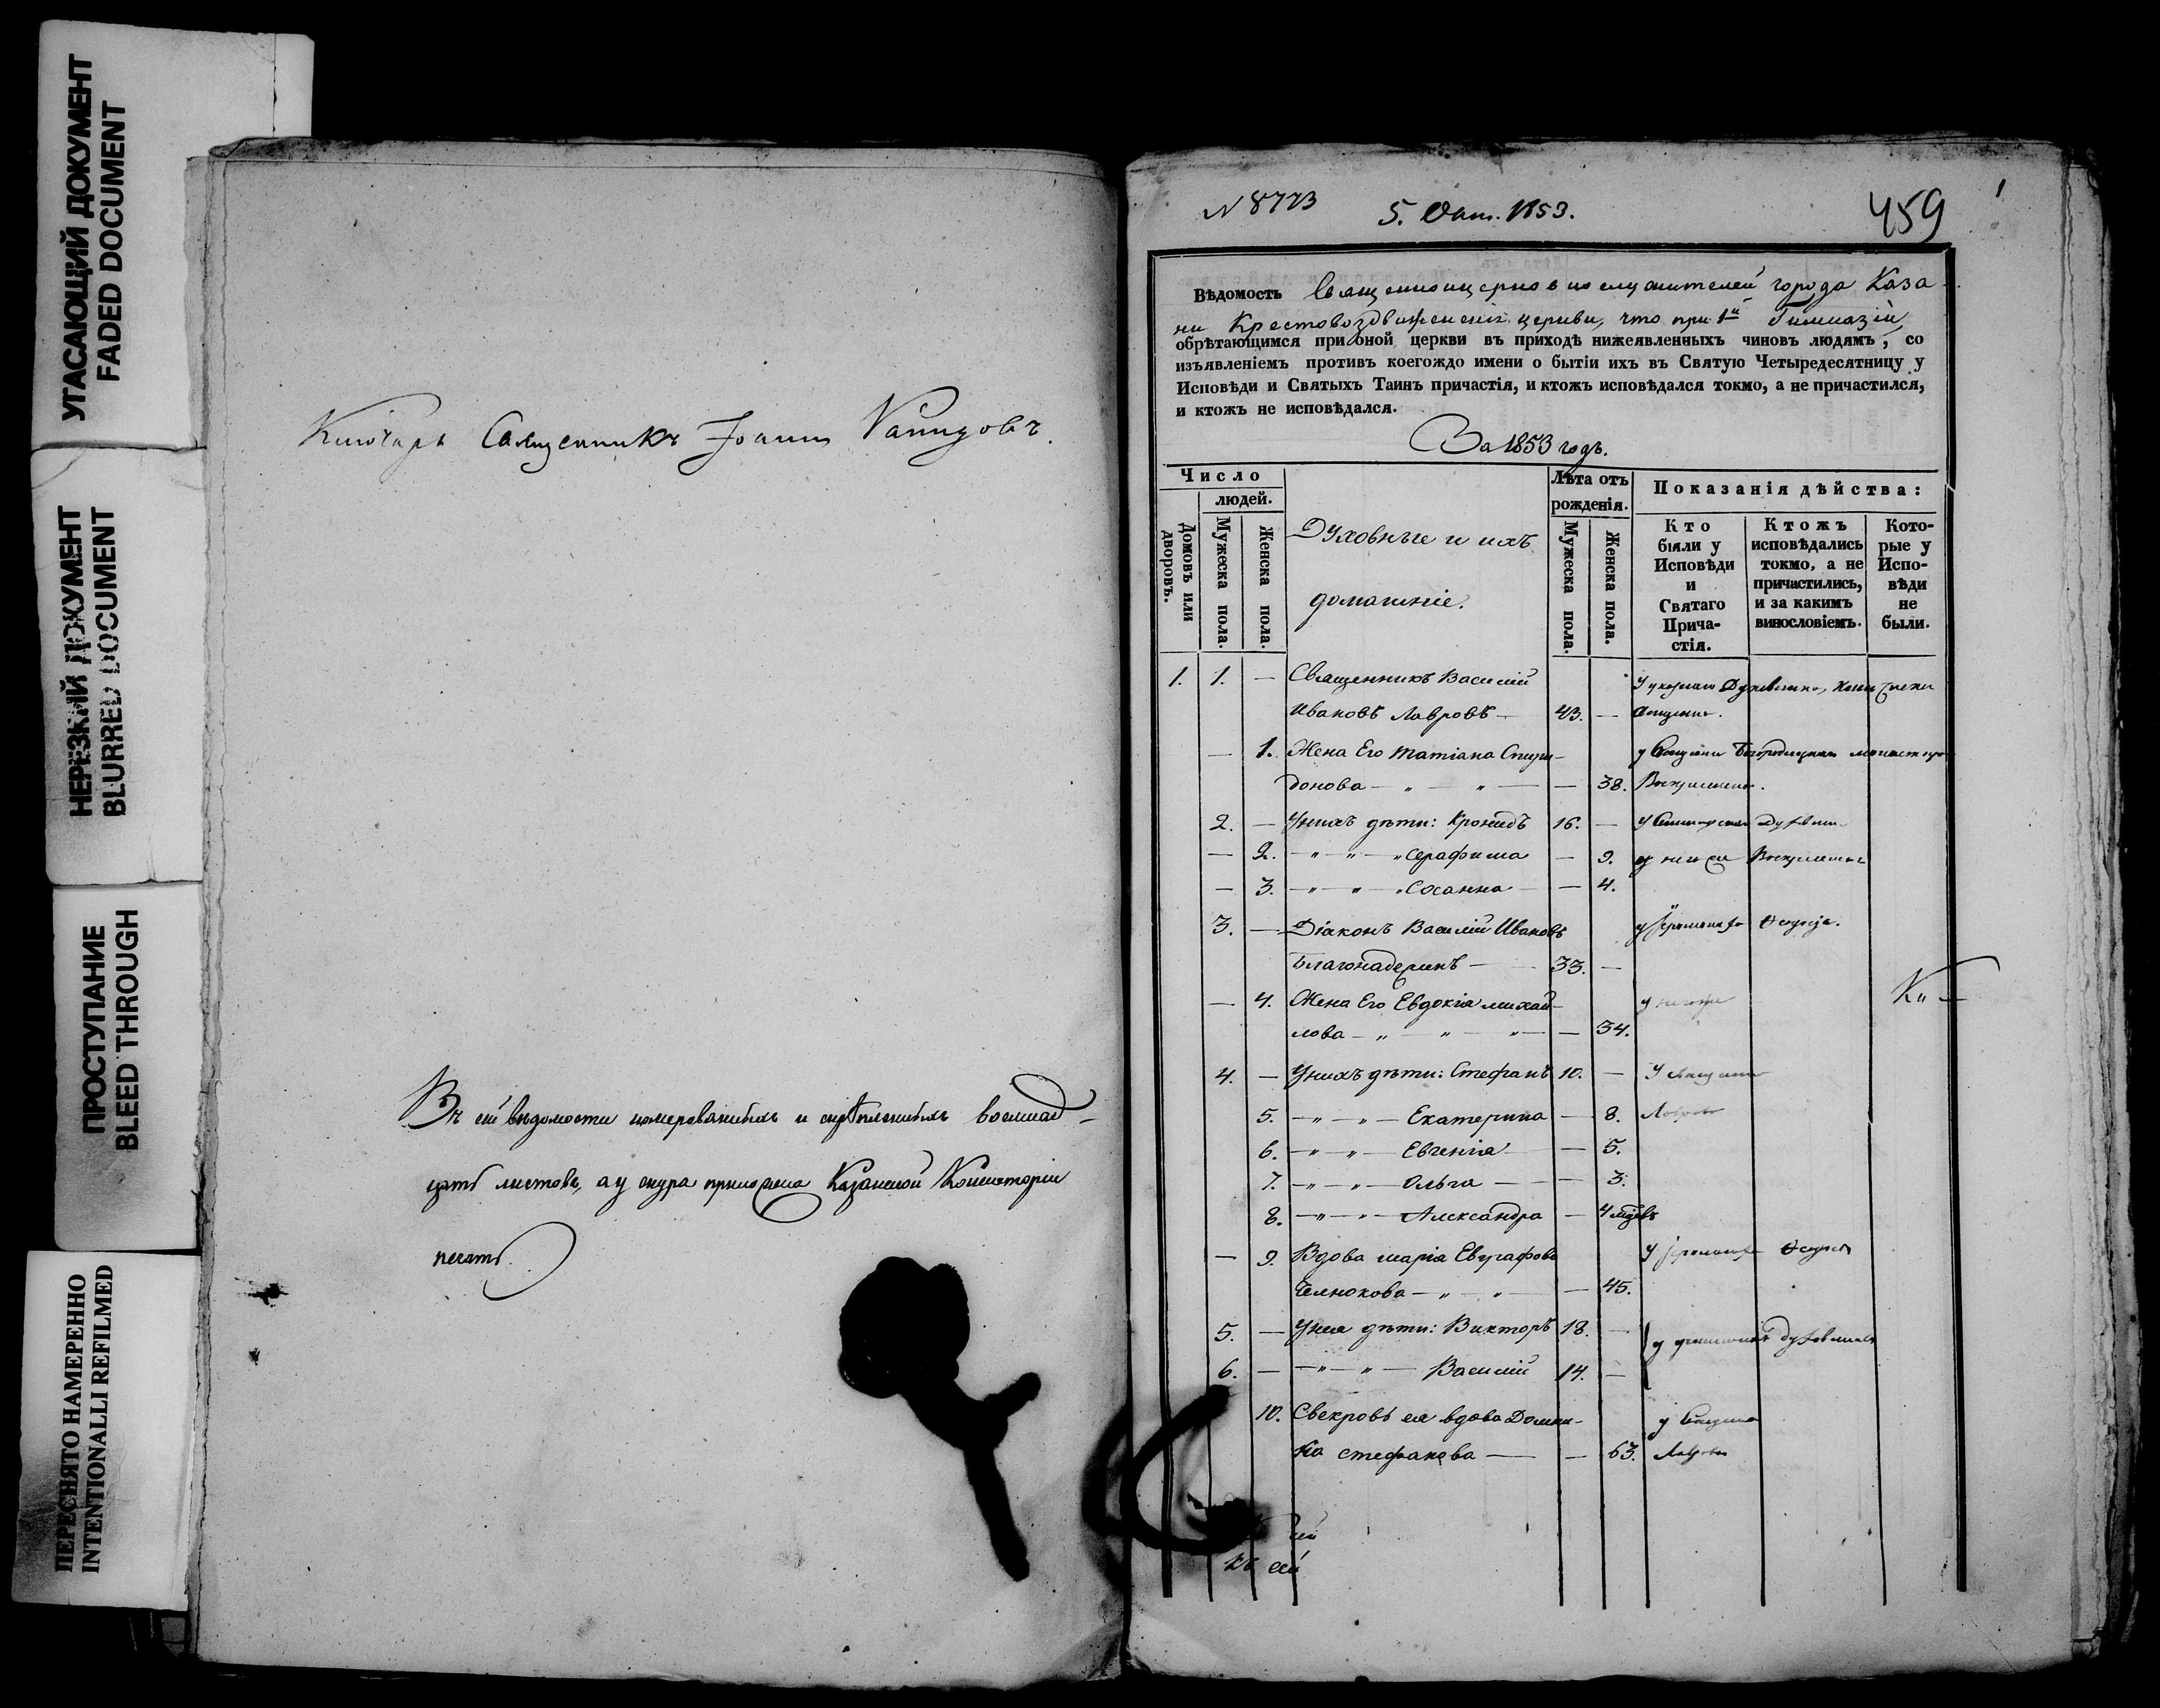 УГАСАЮЩИЙ ДОКУМЕНТ
FADED DOCUMENT
НЕРЕЗКИЙ ДОКУМЕНТ
BLURRED DOCUMENT
ПРОСТУПАНИЕ
BLEED THROUGH
ПЕРЕСНЯТО НАМЕРЕННО
INTENTIONALLI REFILMED
Ключарь Священникъ Іоаннъ
Въ сей вѣдомости номерованныхъ и скрѣпленныхъ восмнад-
цать листовъ, а у снура приложена Казанской Консисторіи
печать.
N 8773 5. Окт. 1853. 459 1
Вѣдомость Священноицерковнослужителей города Каза-
ни Крестовоздвиженской церкви, что при 1й Гимназіи,
обрѣтающимся при оной церкви въ приходѣ нижеявленныхъ чиновъ людямъ, со
изъявленіемъ противъ коегождо имени о бытіи ихъ въ Святую Четыредесятницу у
Исповѣди и Святыхъ Таинъ причастія, и ктожъ исповѣдался токмо, а не причастился,
и ктожъ не исповѣдался.
За 1853 годъ.
Число
людей.
Домовъ или дворовъ.
Мужеска пола.
Женска пола.
Духовные и ихъ
домашніе.
Лѣта отъ
рожденія.
Мужеска пола.
Женска пола.
Показанія дѣйства:
Кто
были у
Исповѣди
и
Святаго
Прича-
стія.
Ктожъ
исповѣдались
токмо, а не
причастились,
и за какимъ
винословіемъ.
Кото-
рые у
Испо-
вѣди
не
были.
1. 1. — Священникъ Василій
Ивановъ Лавровъ — 43. —
— 1. Жена Его Татіана Спири-
донова — „ — „ — — 38.
2. — У нихъ дѣти: Кронидъ 16. —
— 2. — „ — „ — Серафима — 9.
— 3. — „ — „ — Сосанна — — 4.
3. — Діаконъ Василій Ивановъ у Іеромонаха Ѳеодосія.
33. —
— 4. Жена Его Евдокія Михай-
лова — „ — „ — „ — — 34.
4. — У нихъ дѣти: Стефанъ 10. —
5. — „ — „ — Екатерина — 8.
6. — „ — „ — Евгенія — — 5.
7. — „ — „ — Ольга — — 3.
8. — „ — „ — Александра — 4 мѣсяцовъ
— 9. Вдова Марія Евграфова
Челнокова — „ — „ — — 45.
5. — У нея дѣти: Викторъ 18. —
6. — — „ — „ — Василій 14. —
10. Свекровь ея вдова Домни-
ка Стефанова — — 63.
къ сей